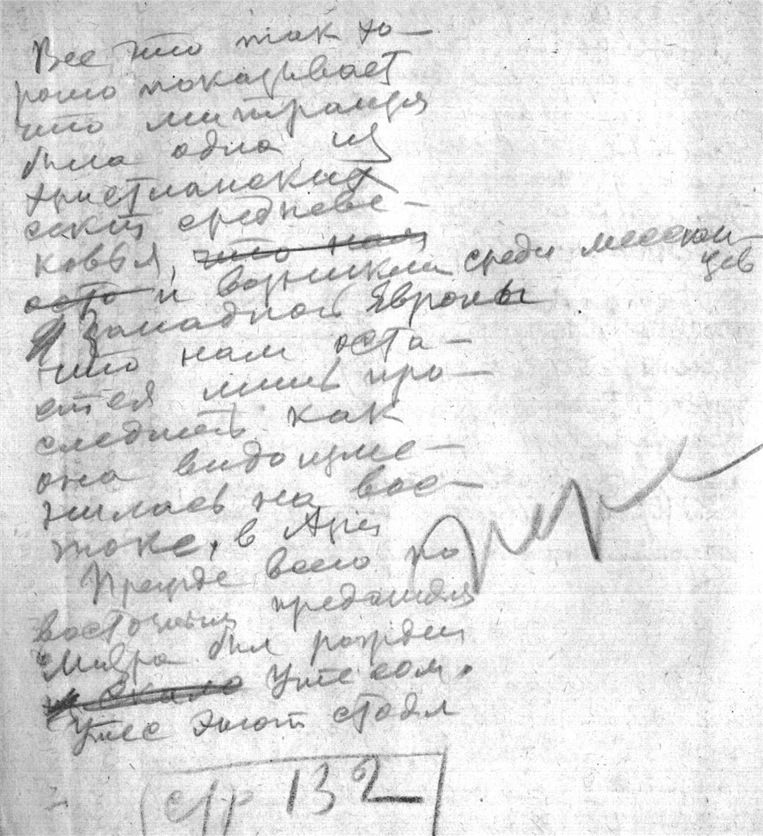 Все это так хо-
рошо показывает
что митраизм
была одна из
христианских
сект средневе-
ковья, что нам
и возникла среди мессиан-
цев
Западной Европы
что нам оста-
ется лишь про-
следить как
она видоизме-
нилась на вос-
токе, в Азии
Прежде всего по
восточным преданиям
Митра был рожден
Скала Утесом.
Утес этот стоял
стр 132